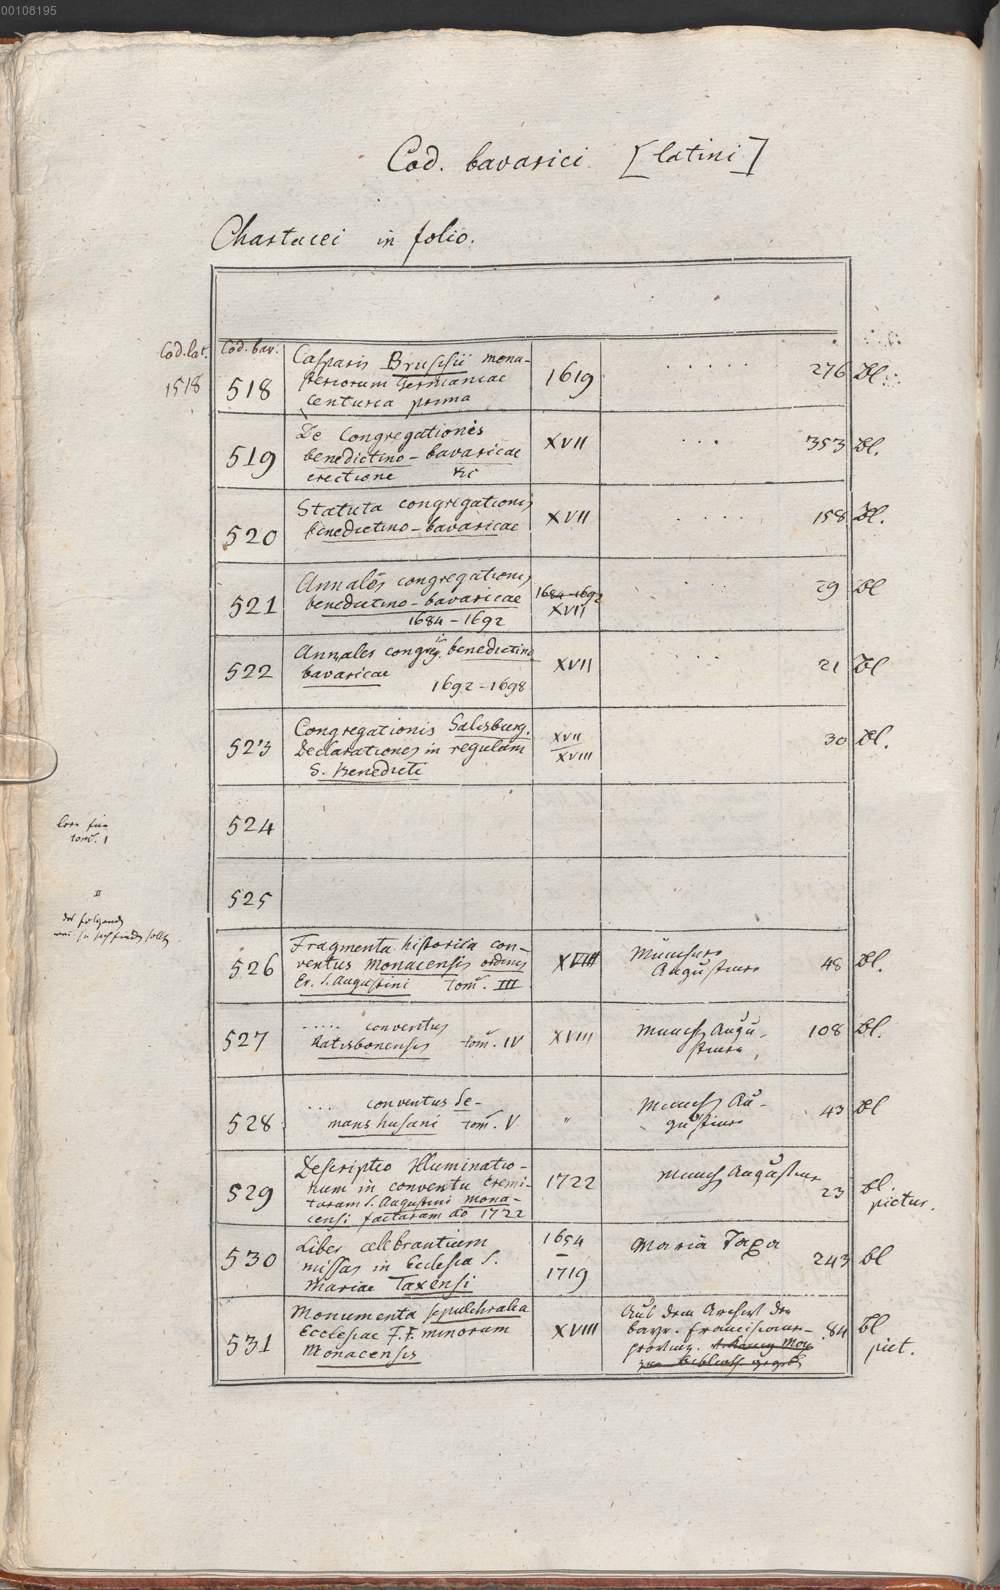 00108195
Cod. bavarici [latini]
Chartacei in folio.
Cod. lat. Cod. bav.
1518 518 Casparis Bruschii mona-
steriorum Germaniae
centuria prima 1619 . . . . . 276 Bl.
519 De Congregationis
benedictino-bavaricae
erectione &c XVII . . . 353 Bl.
520 Statuta congregationis
benedictino-bavaricae XVII . . . . 158 Bl.
521 Annales congregationis
benedictino-bavaricae
1684-1692 1684-1692
XVII . . . 29 Bl
522 Annales congreg. benedictino
bavaricae
1692-1698 XVII . . . . 21 Bl
523 Congregationis Salisburg.
Declarationes in regulam
S. Benedicti XVII
XVIII 30 Bl.
524
leer für
tom. I
525
II
526 Fragmenta historica con-
ventus Monacensis ordinis
Er. S. Augustini Tom. III XVIII Münchner
Augustiner 48 Bl.
527 ..... conventus
Ratisbonensis tom. IV XVIII Münch. Augu-
stiner 108 Bl.
528 ... conventus Se-
manshusani tom. V " Münch. Au-
gustiner 43 Bl
529 Descriptio Illuminatio-
num in conventu Eremi-
tarum S. Augustini Mona-
censi factarum ao 1722 1722 Münch. Augustiner 23 Bl.
pictur.
530 Liber celebrantium
missas in Ecclesia S.
Mariae Taxensi 1654
–
1719 Maria Taxa 243 Bl
531 Monumenta sepulchralia
Ecclesiae F.F. minorum
Monacensis XVIII Aus dem Archiv der
bayr. Franciscaner-
provinz. 84 Bl
pict.